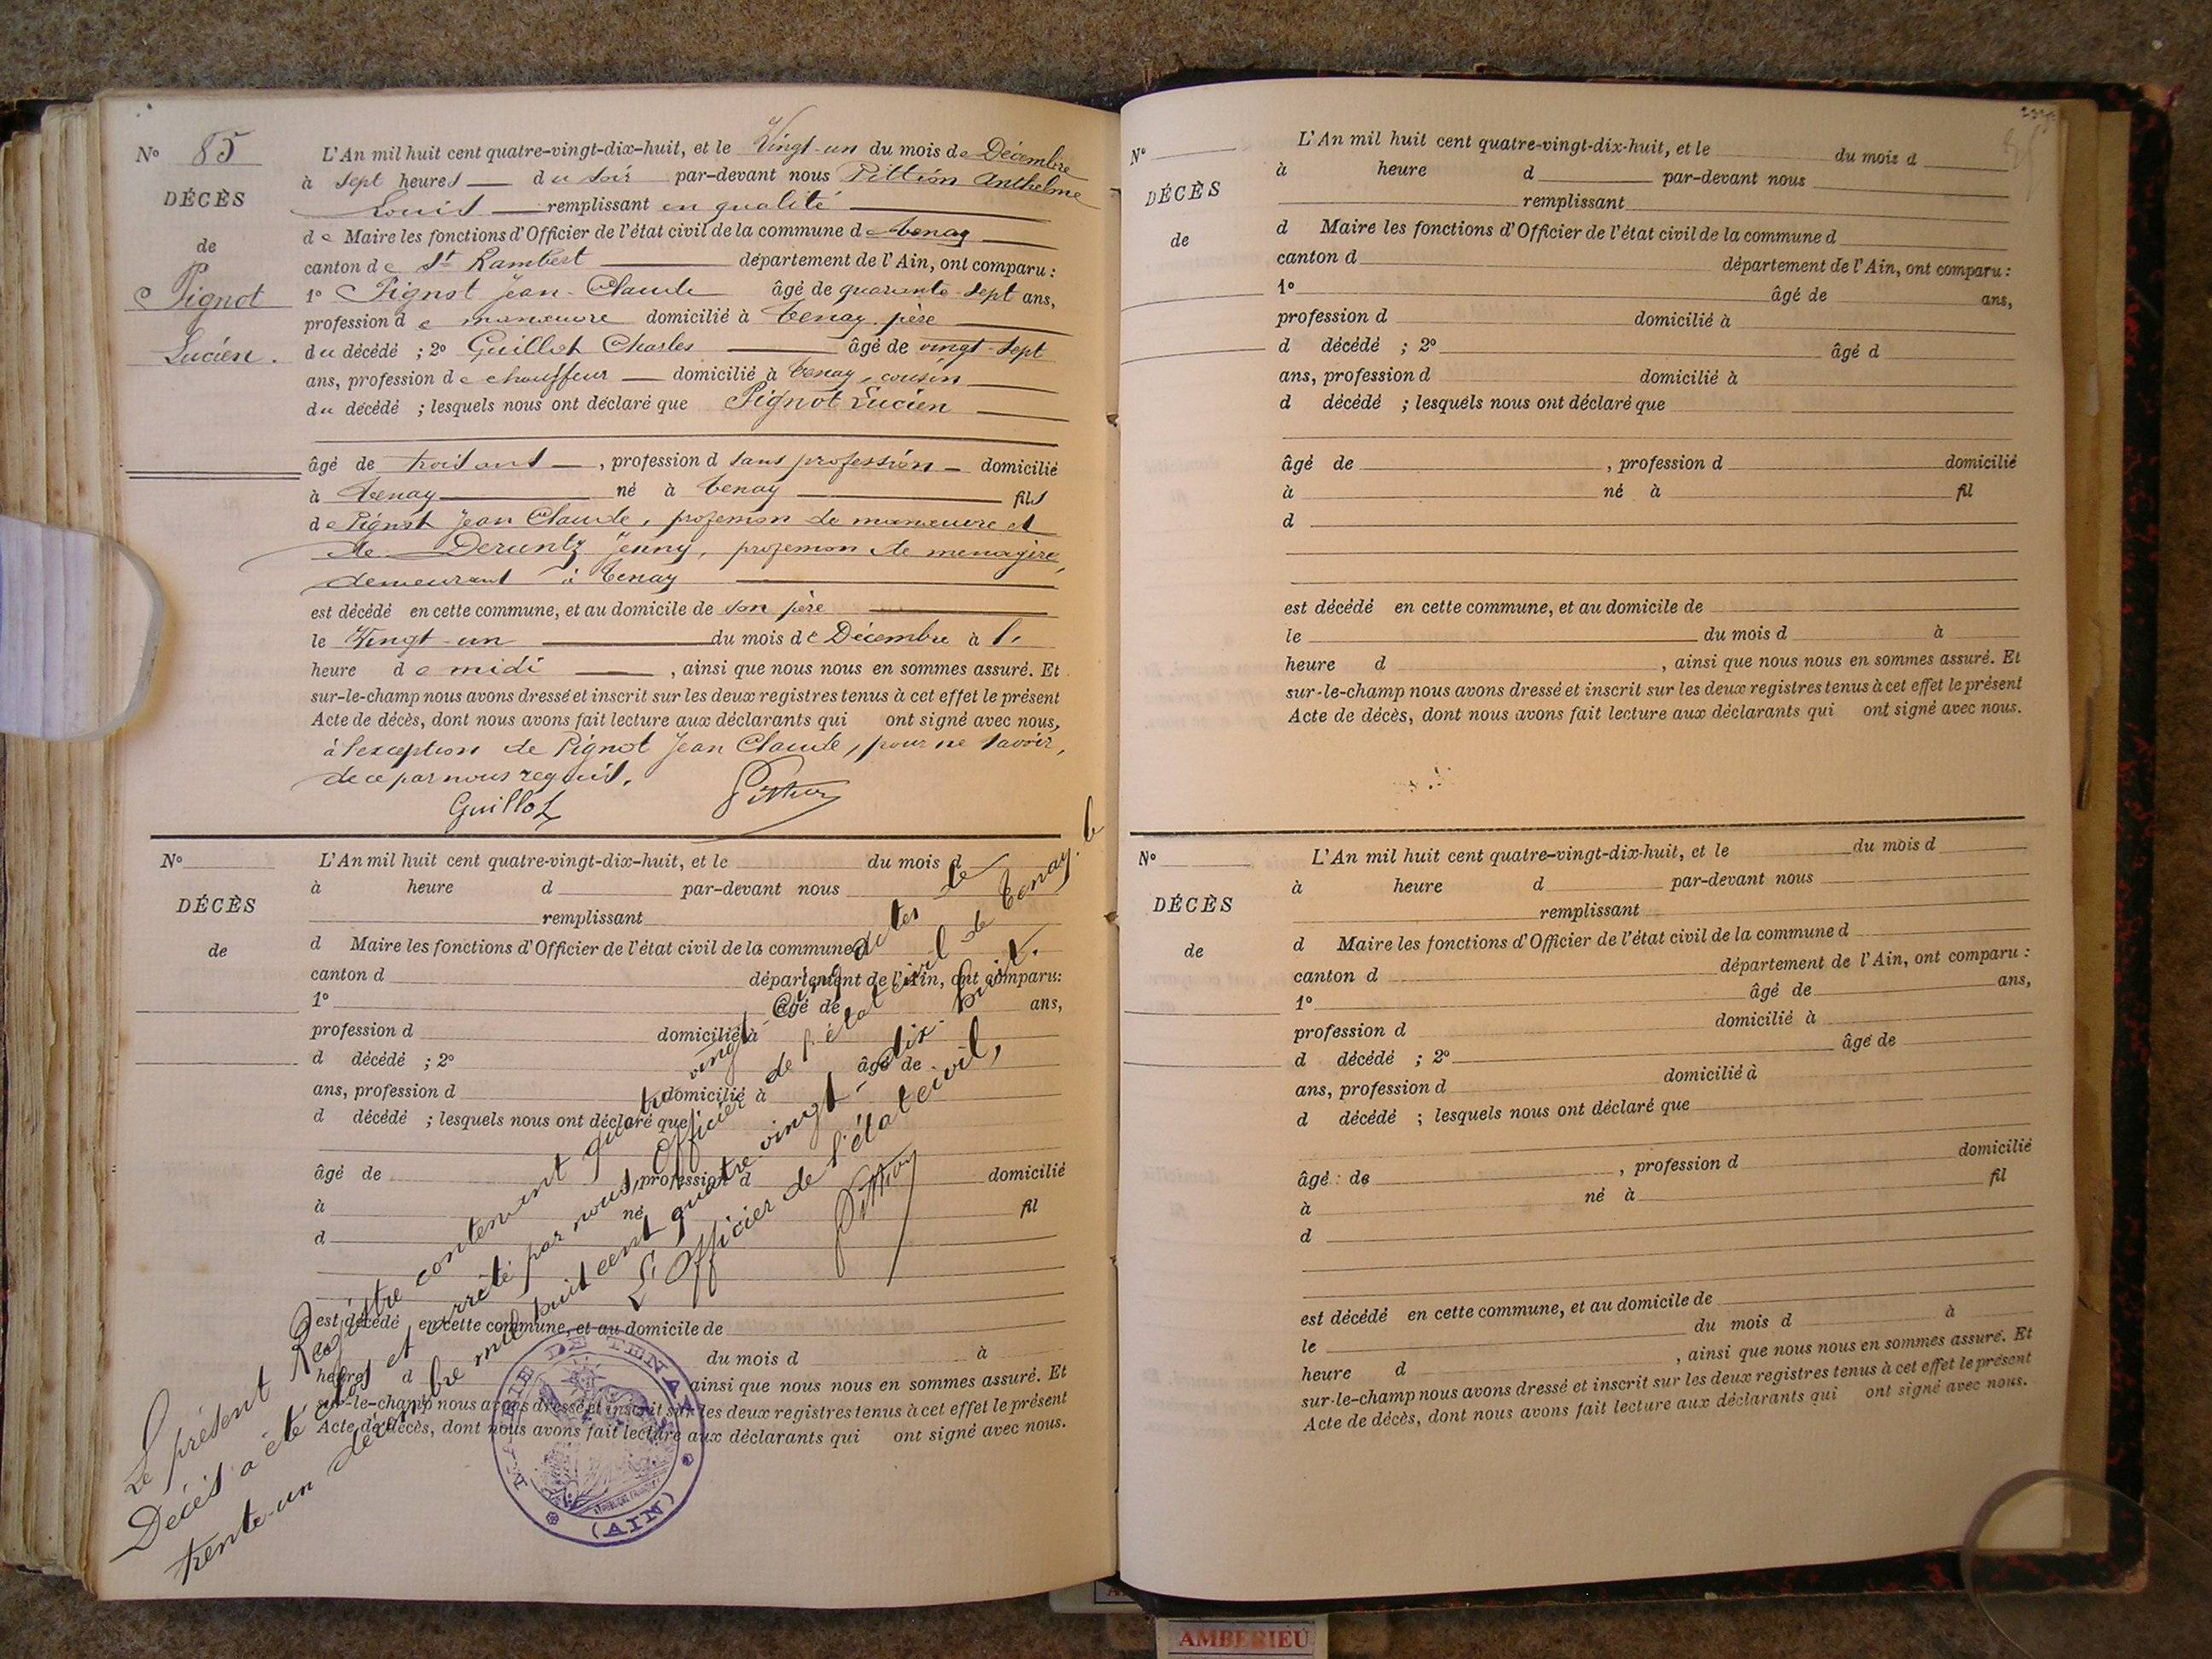 Nº 85
DÉCÈS
de
Pignot
Lucien.
L'An mil huit cent quatre-vingt-dix-huit, et le Vingt-un du mois de Décembre
à sept heures du soir par-devant nous Pittion Anthelme
Louis remplissant en qualité
de Maire les fonctions d'Officier de l'état civil de la commune de Tenay
canton de St Rambert département de l'Ain, ont comparu :
1º Pignot Jean-Claude âgé de quarante-sept ans,
profession de manœuvre domicilié à Tenay, père
du décédé ; 2º Guillot Charles âgé de vingt-sept
ans, profession de chauffeur domicilié à Tenay, cousin
du décédé ; lesquels nous ont déclaré que Pignot Lucien
âgé de trois ans, profession d sans profession domicilié
à Tenay né à Tenay fils
de Pignot Jean Claude, profession de manœuvre et
de Deruntz Jenny, profession de menagère,
demeurant à Tenay
est décédé en cette commune, et au domicile de son père
le Vingt-un du mois de Décembre à 1.
heure de midi, ainsi que nous nous en sommes assuré. Et
sur-le-champ nous avons dressé et inscrit sur les deux registres tenus à cet effet le présent
Acte de décès, dont nous avons fait lecture aux déclarants qui ont signé avec nous,
à l'exception de Pignot Jean Claude, pour ne savoir,
de ce par nous requis.
Guillot Pittion
Nº
DÉCÈS
de
L'An mil huit cent quatre-vingt-dix-huit, et le du mois d
à heure d par-devant nous
remplissant
d Maire les fonctions d'Officier de l'état civil de la commune d
canton d département de l'Ain, ont comparu:
1º âgé de ans,
profession d domicilié à
d décédé ; 2º âgé de
ans, profession d domicilié à
d décédé ; lesquels nous ont déclaré que
âgé de , profession d domicilié
à né fil
d
est décédé en cette commune, et au domicile de
du mois d à
heure d ainsi que nous nous en sommes assuré. Et
sur-le-champ nous avons dressé et inscrit sur les deux registres tenus à cet effet le présent
Acte de décès, dont nous avons fait lecture aux déclarants qui ont signé avec nous.
Le présent Registre contenant quatre vingt-cinq actes de
Décès a été clos et arrêté par nous, Officier de l'état civil de Tenay. le
trente-un décembre mil huit cent quatre-vingt-dix-huit.
L'Officier de l'état civil,
Pittion
MAIRIE DE TENAY
(AIN)
Nº
DÉCÈS
de
L'An mil huit cent quatre-vingt-dix-huit, et le du mois d
à heure d par-devant nous
remplissant
d Maire les fonctions d'Officier de l'état civil de la commune d
canton d département de l'Ain, ont comparu :
1º âgé de ans,
profession d domicilié à
d décédé ; 2º âgé d
ans, profession d domicilié à
d décédé ; lesquels nous ont déclaré que
âgé de , profession d domicilié
à né à fil
d
est décédé en cette commune, et au domicile de
le du mois d à
heure d , ainsi que nous nous en sommes assuré. Et
sur-le-champ nous avons dressé et inscrit sur les deux registres tenus à cet effet le présent
Acte de décès, dont nous avons fait lecture aux déclarants qui ont signé avec nous.
Nº
DÉCÈS
de
L'An mil huit cent quatre-vingt-dix-huit, et le du mois d
à heure d par-devant nous
remplissant
d Maire les fonctions d'Officier de l'état civil de la commune d
canton d département de l'Ain, ont comparu :
1º âgé de ans,
profession d domicilié à
d décédé ; 2º âgé de
ans, profession d domicilié à
d décédé ; lesquels nous ont déclaré que
âgé : de , profession d domicilié
à né à fil
d
est décédé en cette commune, et au domicile de
le du mois d à
heure d , ainsi que nous nous en sommes assuré. Et
sur-le-champ nous avons dressé et inscrit sur les deux registres tenus à cet effet le présent
Acte de décès, dont nous avons fait lecture aux déclarants qui ont signé avec nous.
AMBERIEU